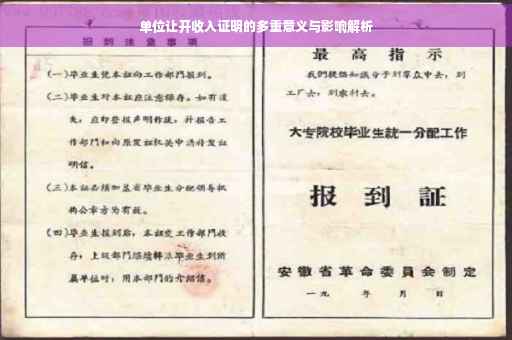 单位让开收入证明的多重意义与影响解析
报到注意事项
(一)毕业生凭本证向工作部门报到。
(二)毕业生对本证应注意保存。如有遗
失,应即登报声明作废,并报告工
作部门和向原发证机关申请补发证
明信。
(三)本证必须加盖省毕业生分配领导机
构公章方为有效。
(四)毕业生报到后,本证交工作部门收
存;上级部门
属单位时,用本部门的介绍信。
最高指示
我们提倡知识分子到群众中去,到
工厂去,到农村去。
大专院校毕业生统一分配工作
报到証
安徽省革命委員会制定
一九 年 月 日